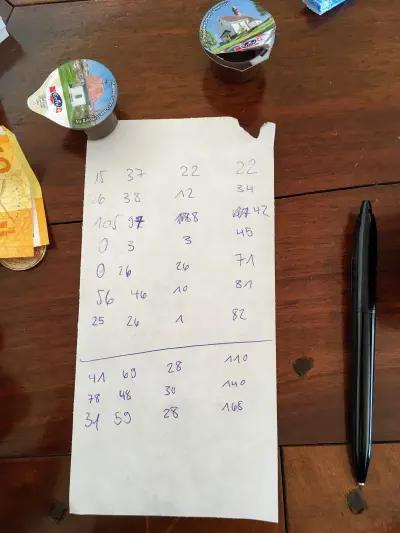 15 37 22 22
26 38 12 34
105 97 8 42
0 3 3 45
0 26 26 71
56 46 10 81
25 26 1 82
41 69 28 110
78 48 30 140
31 59 28 168